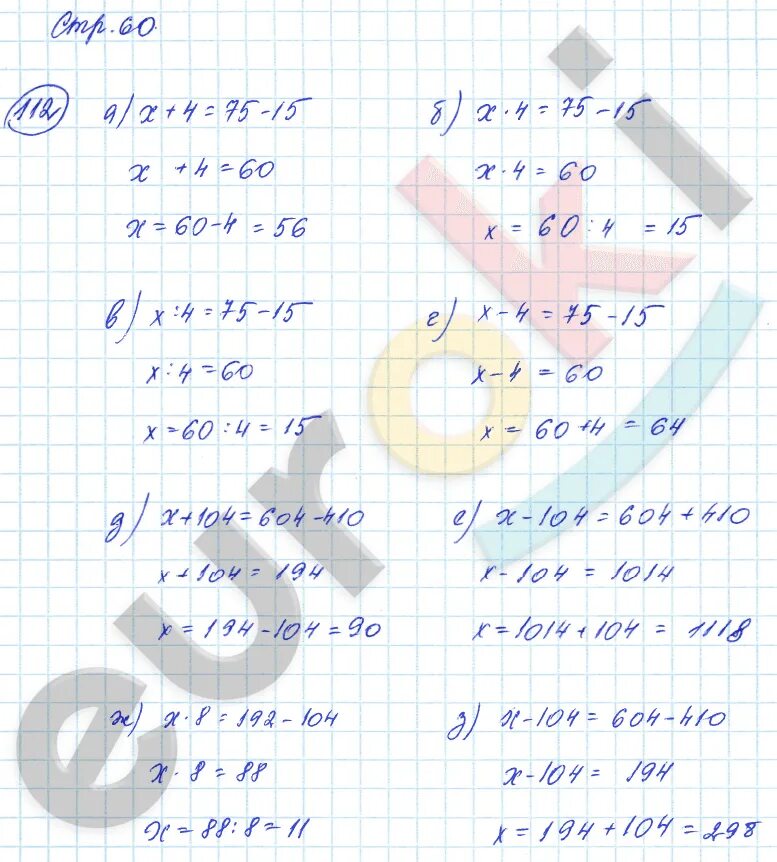 Стр. 60
112
а) x + 4 = 75 - 15
x + 4 = 60
x = 60 - 4 = 56
б) x · 4 = 75 - 15
x · 4 = 60
x = 60 : 4 = 15
в) x : 4 = 75 - 15
x : 4 = 60
x = 60 : 4 = 15
г) x - 4 = 75 - 15
x - 4 = 60
x = 60 + 4 = 64
д) x + 104 = 604 - 410
x + 104 = 194
x = 194 - 104 = 90
е) x - 104 = 604 + 410
x - 104 = 1014
x = 1014 + 104 = 1118
ж) x · 8 = 192 - 104
x · 8 = 88
x = 88 : 8 = 11
з) x - 104 = 604 - 410
x - 104 = 194
x = 194 + 104 = 298
euroki